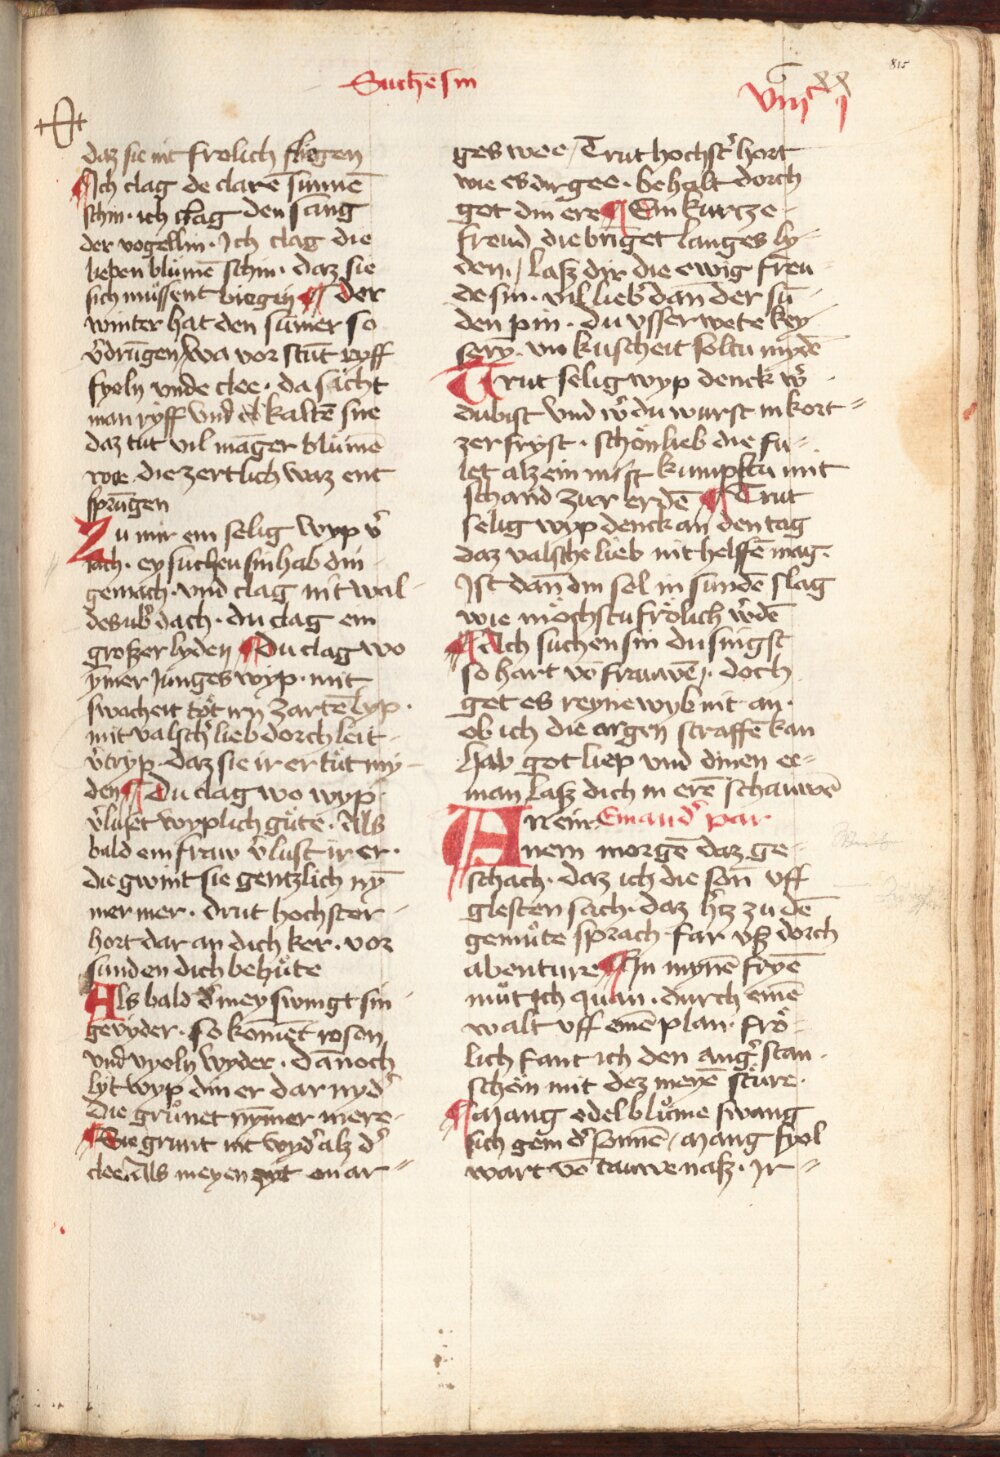 Suchēsin
815
viiijᶜ xx j
daz sie nit frolich fliegen
¶ Ich clag de clarē sunnē
schin · ich clag den sang
der vogellin · Ich clag die
lieben blümē schin · daz sie
sich müssent biegen ¶ der
winter hat den sum̄er so
v̓drūgen / wa vor stūt ryff
fyoln vnde clee · da sicht
man ryff vnd kaltē sne
daz tut vil māger blümē
wee die zertlich waz ent
sprūgen
Zu mir ein selig wyp v̓
iach · ey suchen sin hab din
gemach · vnd clag nit wal-
des ub̓ dach · du clag ein
groszer lyden ¶ Du clag wo
ȳmer junges wyp · mit
swacheit töt irn zartē lyp ·
mit valsch̓ lieb dorch leit-
v̓tryp · daz sie ir er tüt my-
den ¶ Du clag wo wyp
v̓luset wyplich güte · Als
bald ein fraw v̓lust ir er ·
die gwint sie gentzlich nȳ
mer mer · drut hochster-
hort dar an dich ker · vor
sunden dich behüte
Als bald d̓ mey swingt sin
gevyder · so komēt roson
vnd vyoln wyder · dānoch
lyt wyp din er dar nyd̓
die grünet nȳmer mere ·
¶ Sie grunt nit wyd̓ alz d̓
clee Als meyen zyt on ar=
ges wee / Trut hochst̓ hort
wie es dir gee · behalt dorch
got din ere ¶ Ein kurcze-
freud die bringet langes ly=
den · / lasz dyr die ewig freu
de sin · vil lieb̓ dan̄ der sū-
den pin · du vsserwete key
seryn · vn kuscheit soltu mydē
Trut selig wyp denck w̓
du bist vnd w̓ du wurst in kort=
zer fryst · schön lieb die fu-
let alz ein mist kumpstu mit
schand zur erdē ¶ Trut
selig wyp denck an den tag
daz valsche lieb nit helffē mag ·
Ist dan̄ din sel in sundē slag
wie möchstu frölich w̓dē
¶ Ach suchen sin du singst
so hart vō frauwē · doch
get es reyne wyb nit an ·
ob ich die argen straffē kan
hab got liep vnd dinen ee-
man lasz dich in erē schauwē
AN ein Ein and̓ par
anem morgē daz ge-
schach · daz ich die son̄ vff
glesten sach · daz h̓tz zu dē
gemüte sprach far vsz dorch
abenture ¶ In mynē fryē
mūt ich quan · durch einē
walt vff einē plan · frö-
lich fant ich den ang̓ stan ·
schön mit dez meyē stüre ·
¶ Mang edel blüme swang
sich gein d̓ sunnē / mang fyol
wart vō tauwe nasz · Ir=